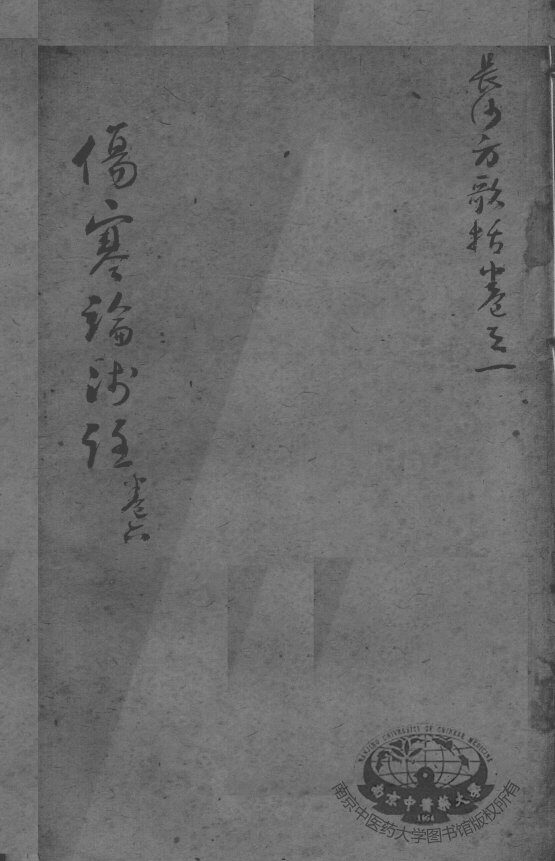 長沙方歌括卷之一
傷寒論淺註卷六
NANJING UNIVERSITY OF CHINESE MEDICINE
南京中醫藥大學
1954
南京中医药大学图书馆版权所有